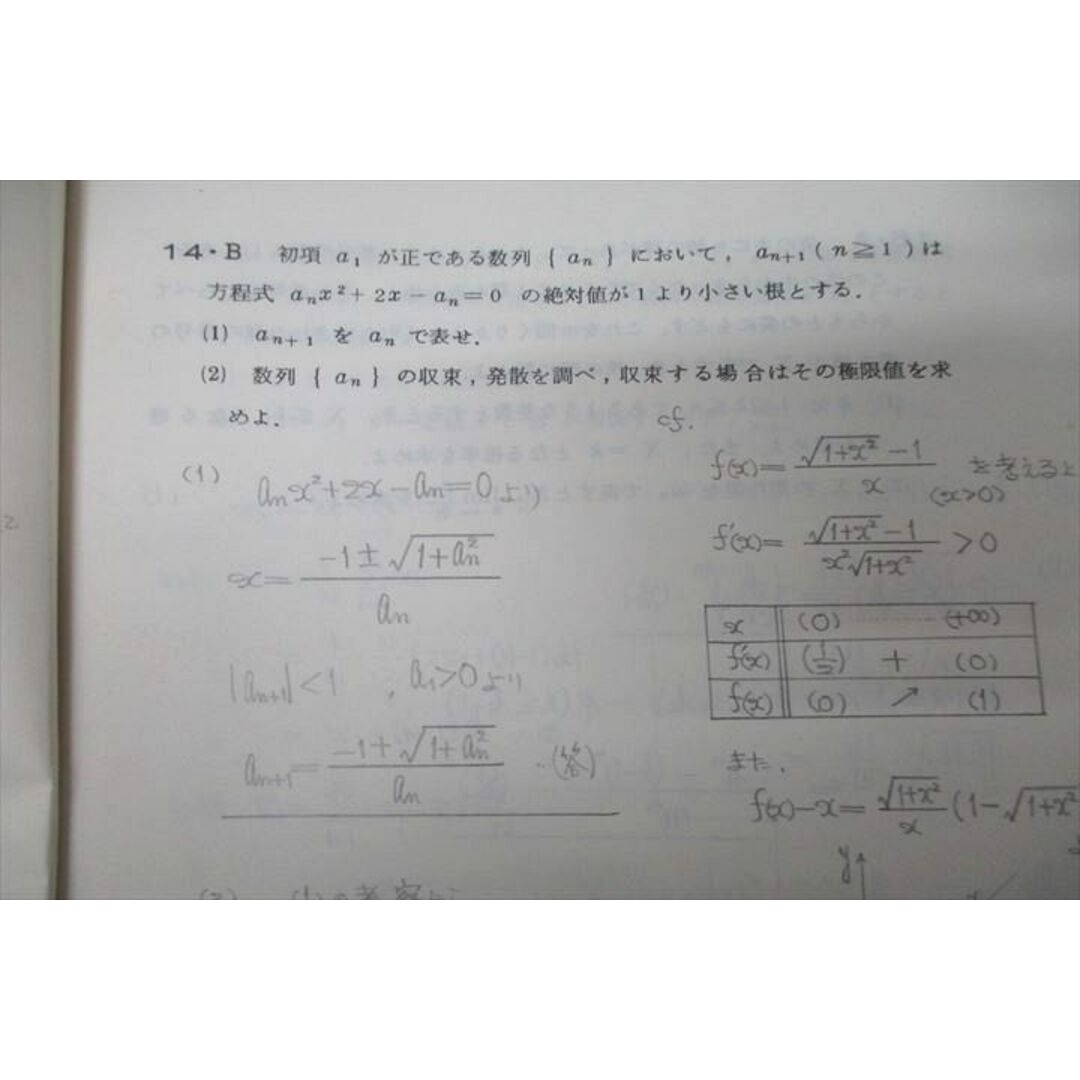 14・B 初項 a₁ が正である数列 { aₙ } において, aₙ₊₁ ( n≧1 ) は
方程式 aₙx²+2x−aₙ=0 の絶対値が1より小さい根とする.
(1) aₙ₊₁ を aₙ で表せ.
(2) 数列 { aₙ } の収束,発散を調べ,収束する場合はその極限値を求
めよ.
(1) aₙx²+2x−aₙ=0 より
x= (−1±√(1+aₙ²))/aₙ
|aₙ₊₁|<1 , a₁>0 より
aₙ₊₁= (−1+√(1+aₙ²))/aₙ …(答)
cf.
f(x)= (√(1+x²)−1)/x を考えると
(x>0)
f'(x)= (√(1+x²)−1)/(x²√(1+x²)) >0
x (0) ……… (+∞)
f'(x) (1/2) + (0)
f(x) (0) ↗ (1)
また,
f(x)−x= √(1+x²)/x (1−√(1+x²
y